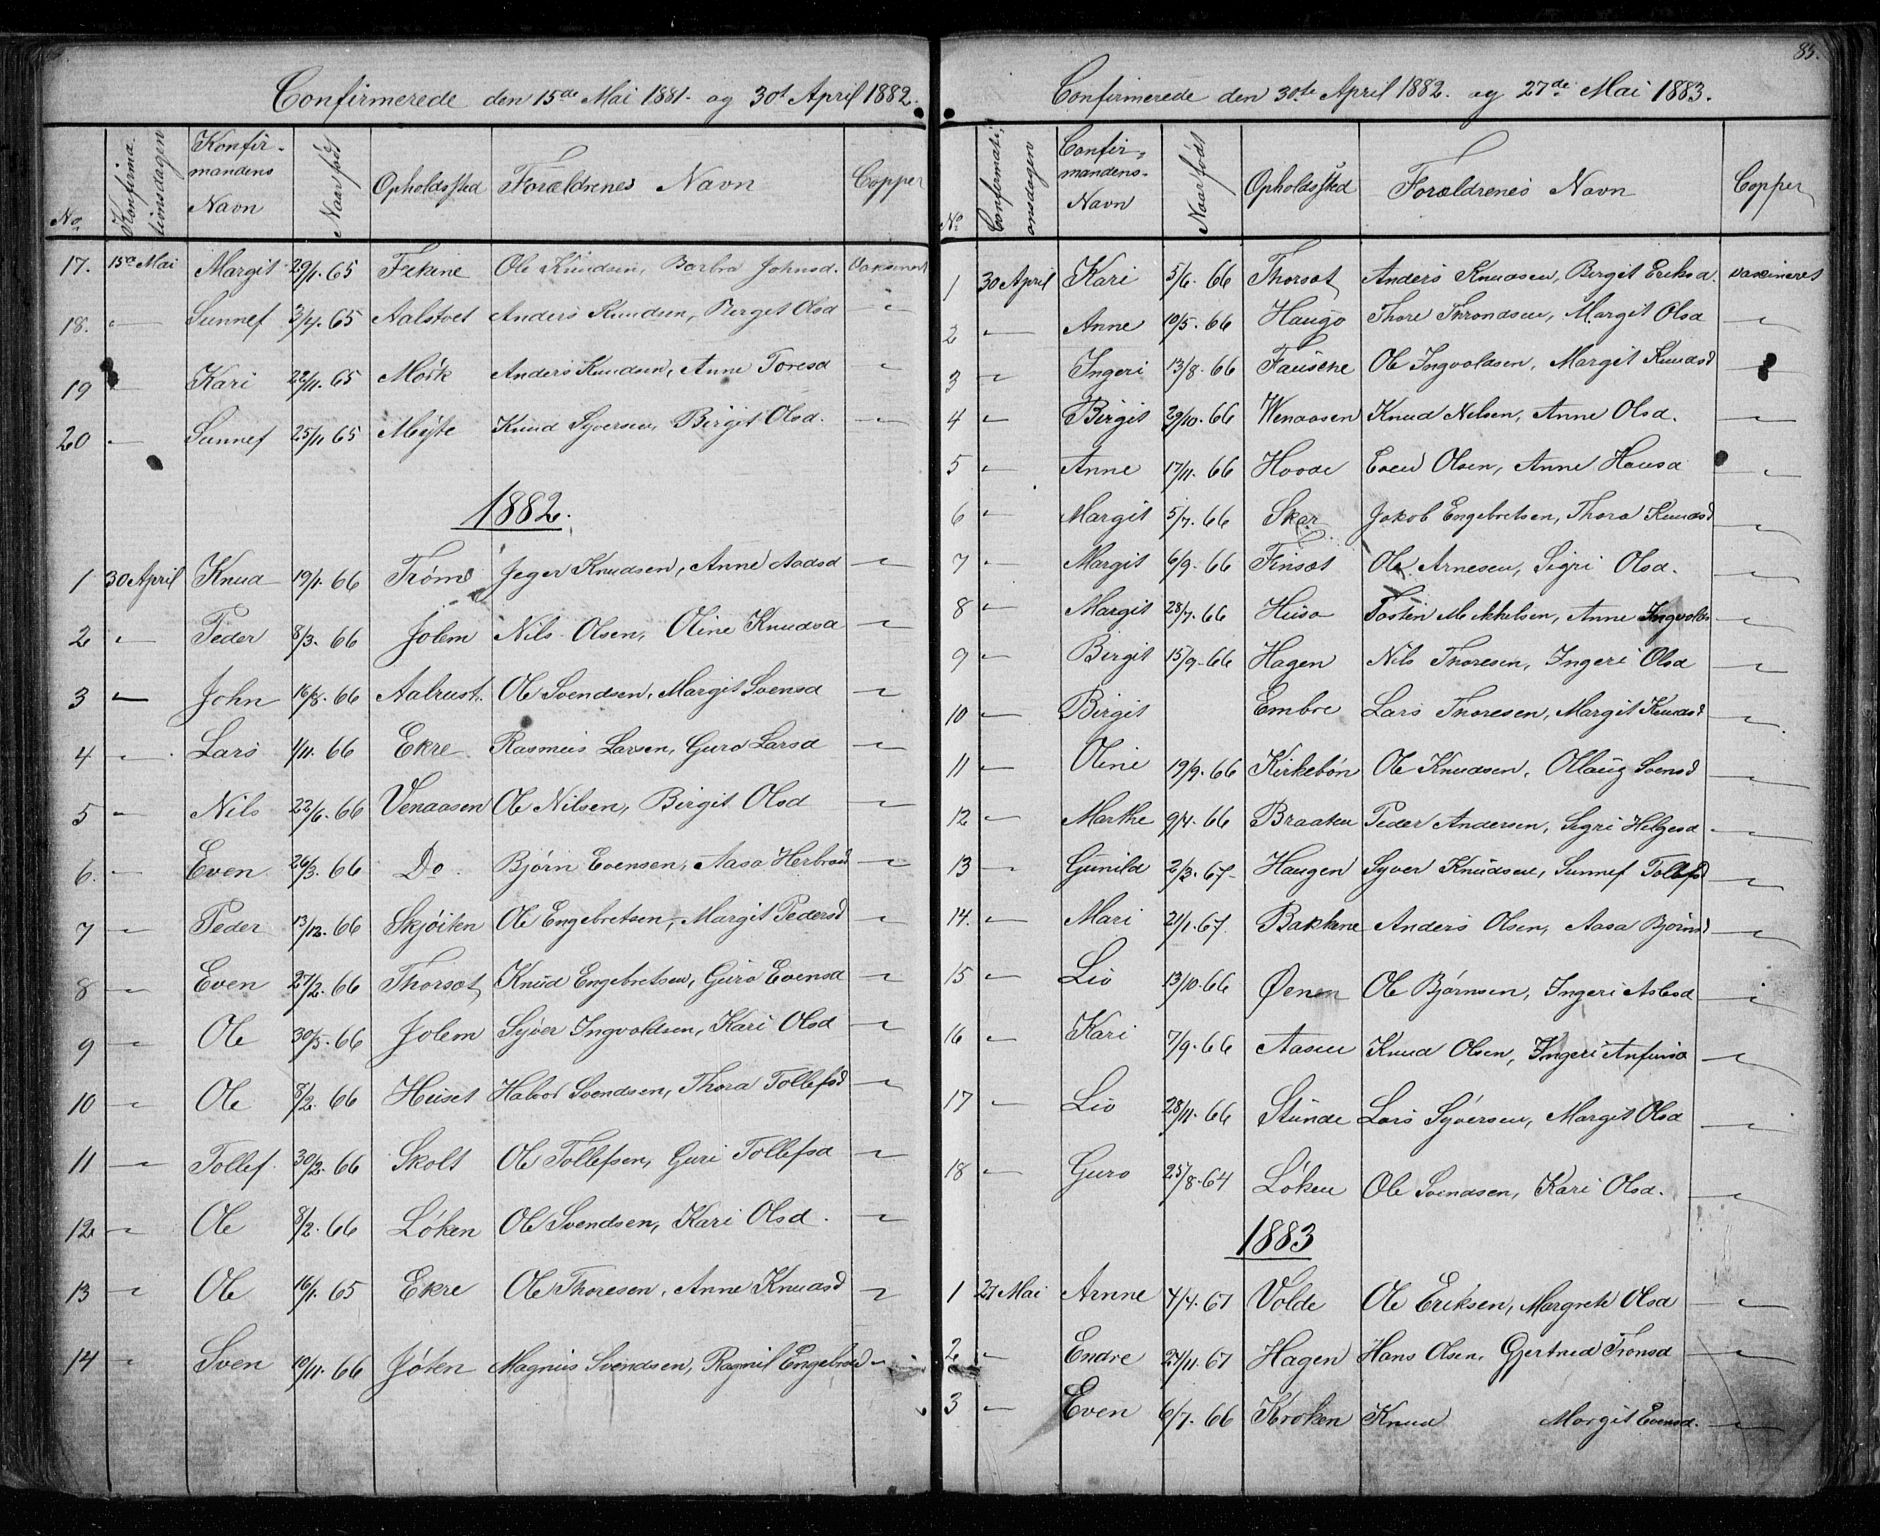 Confirmerede den 15de Mai 1881. og 30t April 1882.
No. Konfirmationsdagen Konfirmandens Navn Naar født Opholdssted Forældrenes Navn Copper
17. 15de Mai Margit 29/1. 65 Frkine Ole Knudsen, Barbro Johnsd. Vaksineret
18. " Sunnef 3/4. 65 Aalstvet Anders Knudsen, Berget Olsd "
19 " Kari 22/11. 65 Mörk Anders Knudsen, Anne Toresd "
20 " Sunnef 25/11 65 Knud Syversen, Birgit Olsd. "
1882.
1 30 April Knud 19/1. 66 Trömd Jeger Knudsen, Anne Aadsd "
2 " Peder 8/3. 66 Jolem Nils Olsen, Oline Knudsd "
3 " John 16/8. 66 Aalrust. Ole Svendsen, Margit Svensd "
4 " Lars 1/11. 66 Ekre Rasmus Larsen, Guro Larsd "
5 " Nils 22/6. 66 Venaasen Ole Nilsen, Birgit Olsd "
6. " Even 26/3. 66 Do. Bjørn Evensen, Aasa Herbrand "
7 " Peder 13/12. 66 Skjöiten Ole Engebretsen, Margit Pedersd "
8 " Even 27/2. 66 Thorsæt Knud Engebretsen, Guro Evensd "
9 " Ole 30/5. 66 Jolem Syver Ingvoldsen, Kari Olsd "
10 " Ole 8/2. 66 Huset Halvor Svendsen, Thora Tollefsd "
11 " Tollef. 30/2. 66 Skolt Ole Tollefsen, Guri Tollefsd "
12 " Ole 8/2. 66 Løken Ole Svendsen, Kari Olsd. "
13 " Ole 16/1. 65 Ekre Ole Thoresen, Anne Knudsd "
14 " Sven 10/11. 66 Magnus Svendsen, Ragnil "
85.
Confirmerede den 30te April 1882. og 27de Mai 1883.
No. Confirmationsdagen Confirmandens Navn Naar født Opholdssted Forældrenes Navn Copper
1 30 April Kari 5/6. 66 Thorsæt Anders Knudsen, Birgit Eriksd. vaxineret
2 " Anne 10/5. 66 Haugo Thore Throndsen, Margit Olsd "
3 " Ingeri 13/8. 66 Fausche Ole Ingvoldsen, Margit Knudsd
4 " Birgit 29/10. 66 Wenaasen Knud Nilsen, Anne Olsd. "
5 " Anne 17/11. 66 Hovde Even Olsen, Anne Hansd "
6 " Margit 5/7. 66 Skar Jakob Engebretsen, Thora Knudsd "
7 " Margit 6/9. 66 Finsæt Ole Arnesen, Sigri Olsd. "
8 " Margit 28/7. 66 Huso Tosten Mikkelsen, Anne Ingvolds "
9 " Birgit 15/9. 66 Hagen Nils Thoresen, Ingeri Olsd "
10 " Birgit Embre Lars Thoresen, Margit Knudsd "
11 " Oline 19/9. 66 Kirkebøn Ole Knudsen, Ollaug Svensd "
12 " Marthe 9/4. 66 Braaten Peder Andersen, Sigri Helgesd "
13 " Gunild 2/3. 67 Haugen Syver Knudsen, Sunnef Tollefsd "
14. " Mari 21/1. 67. Bakkene Anders Olsen, Aasa Bjørnsd "
15 " Liv 13/10. 66 Øenen Ole Bjørnsen, Ingeri Aslesd "
16 " Kari 7/9. 66 Aasen Knud Olsen, Ingeri Anfinsd "
17 " Liv 28/11. 66 Stunde Lars Syversen, Margit Olsd "
18 " Guro 25/8. 64 Løken Ole Svendsen, Kari Olsd. "
1883
1 27 Mai Arnne 4/4. 67 Volde Ole Eriksen, Margrete Olsd "
2 " Endre 24/11. 67 Hagen Hans Olsen, Gjertrud Tronsd "
3 " Even 6/7. 66 Kroken Knud Margit Evensd. "